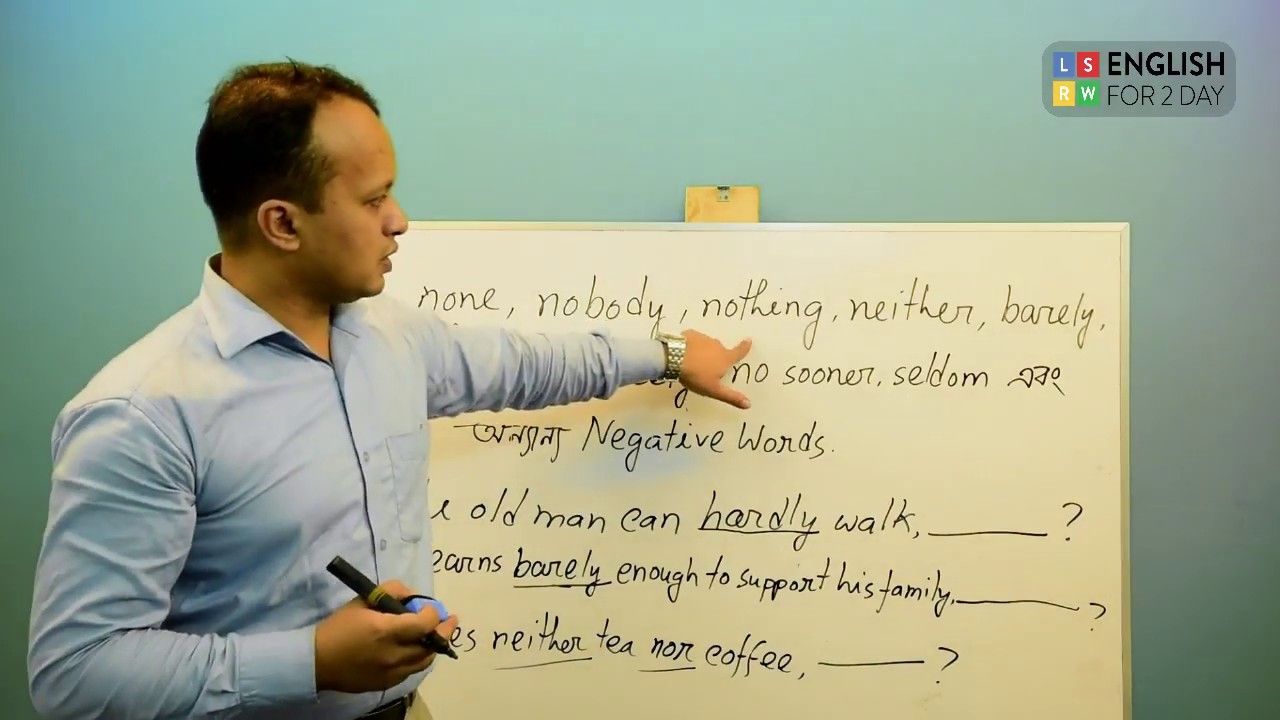 L S ENGLISH
R W FOR 2 DAY
none, nobody, nothing, neither, barely,
no sooner, seldom এবং
অন্যান্য Negative Words.
old man can hardly walk, ______?
earns barely enough to support his family, ______?
neither tea nor coffee, ______?